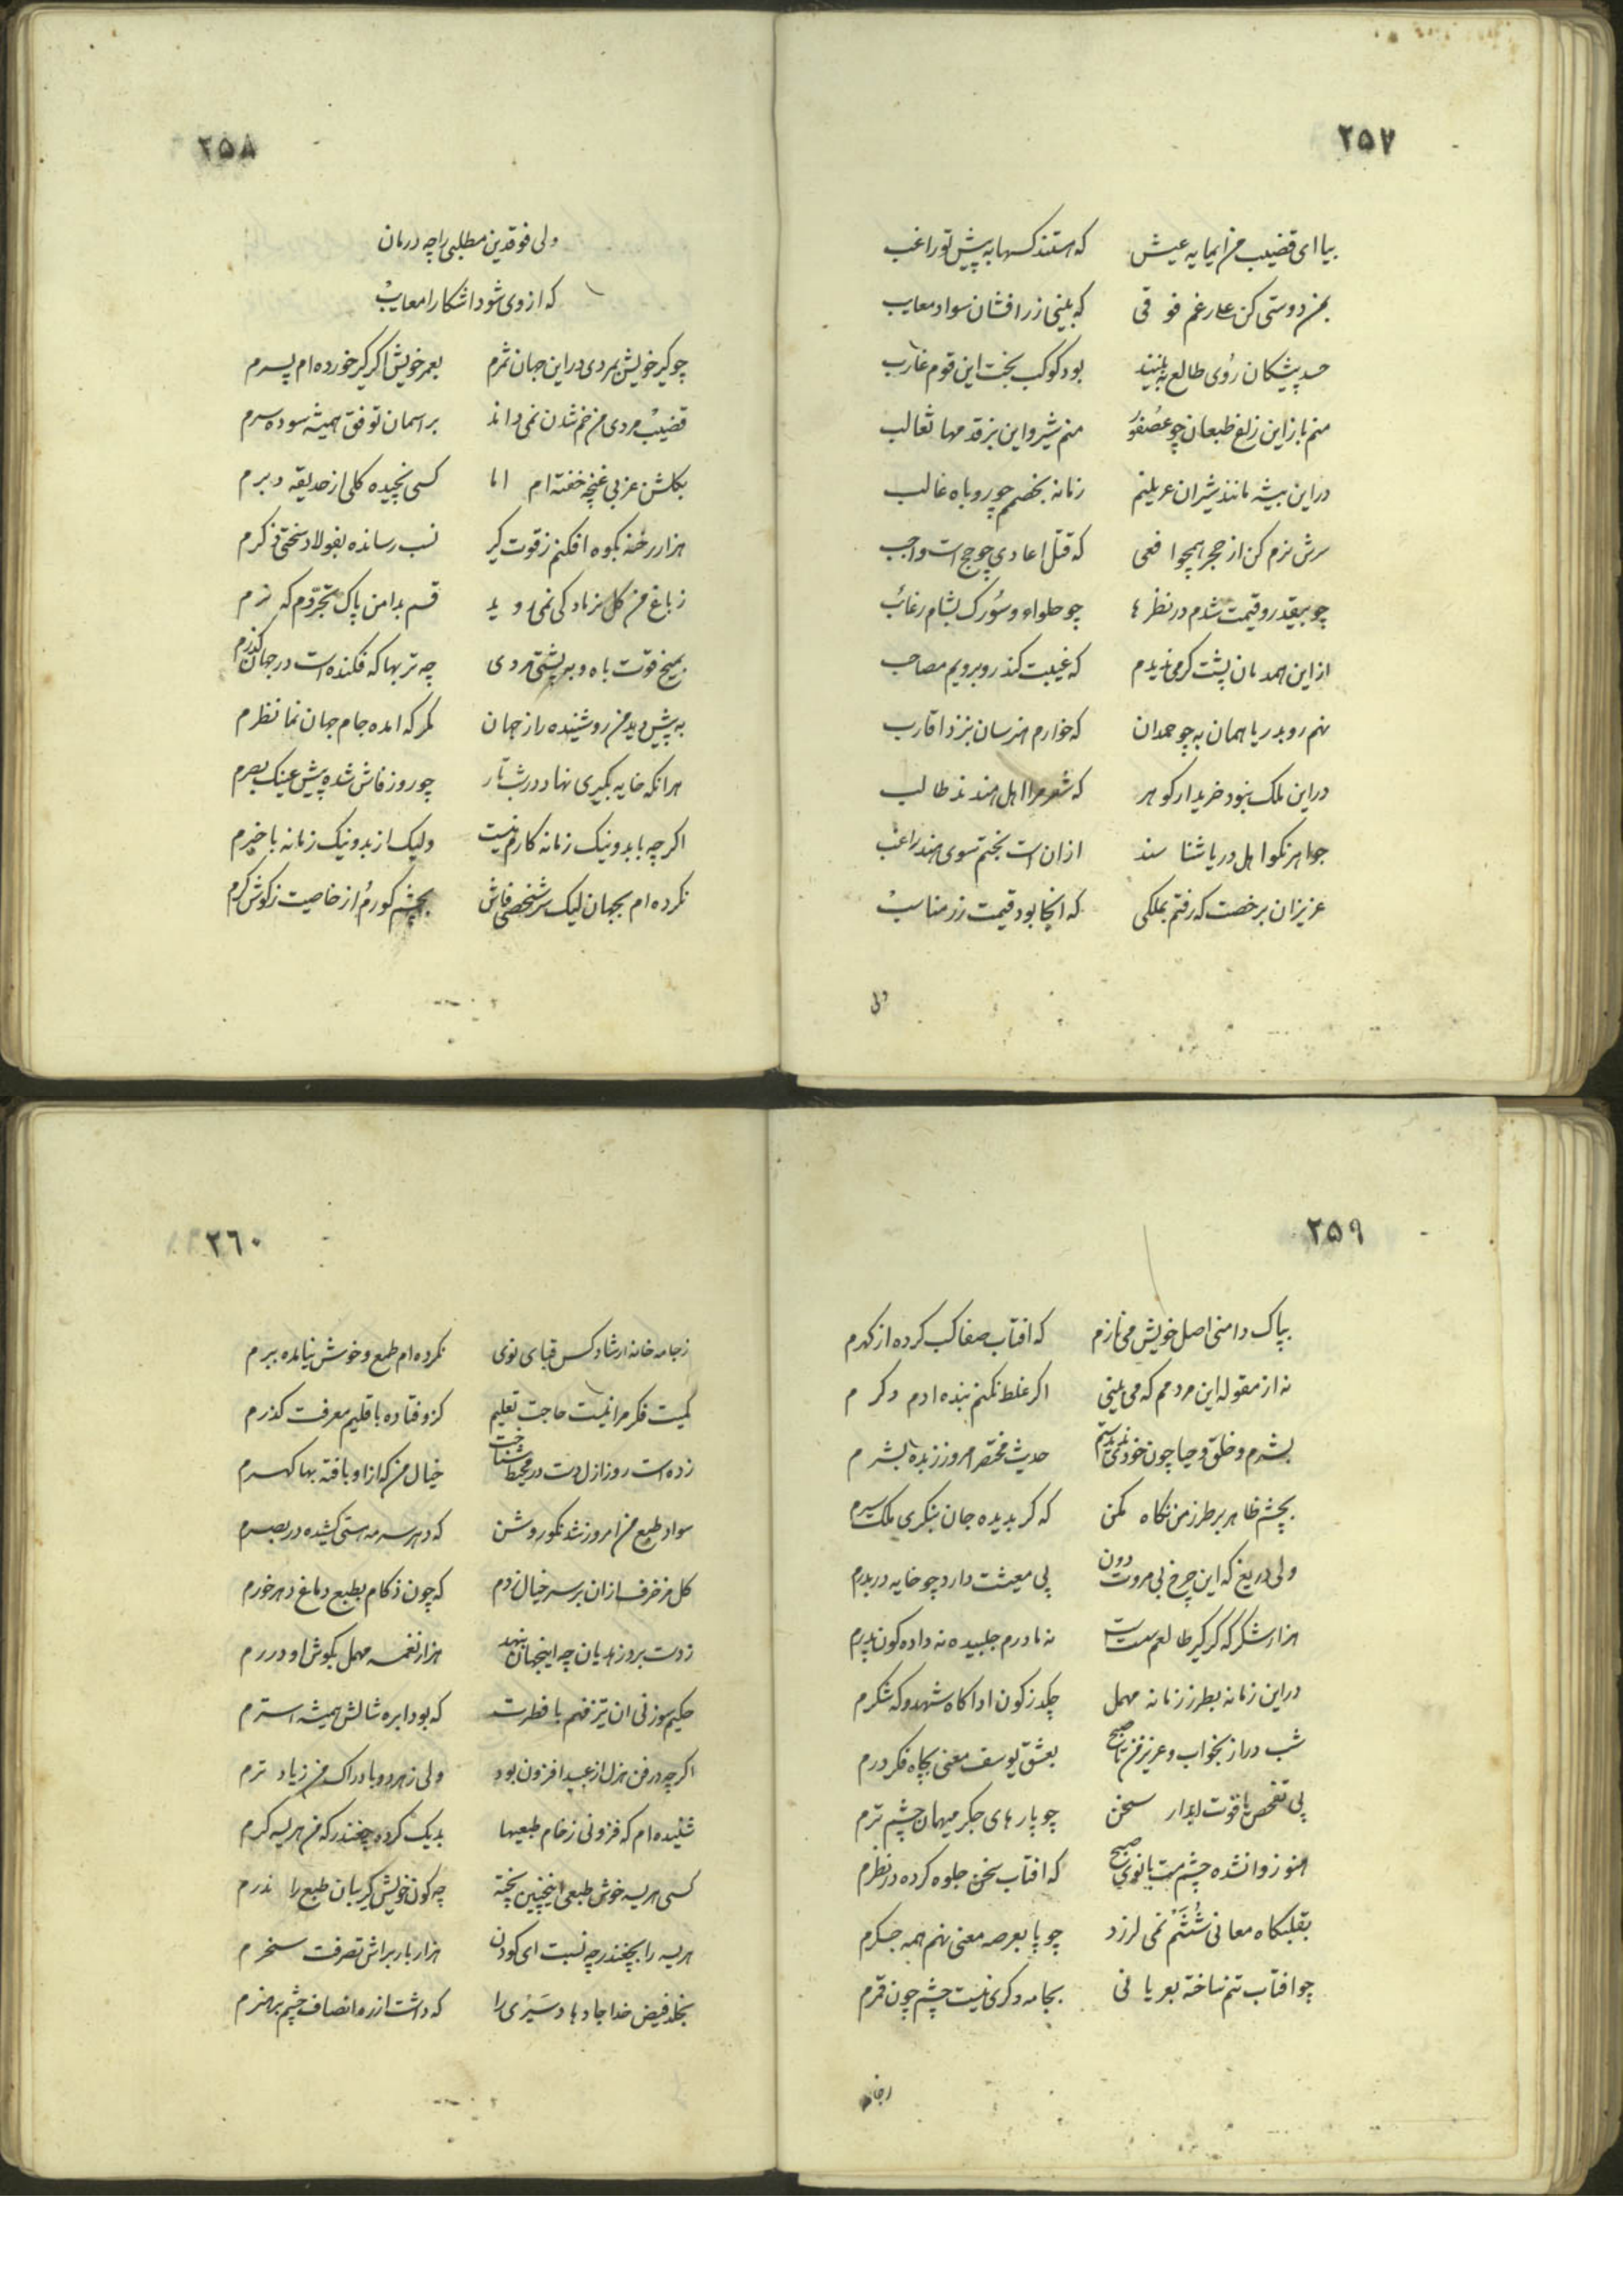 ۲۵۷
بیا ای قضیب من ای مایه عیش که هستند کسها به پیش تو راغب
بمن دوستی کن علی رغم فوقی که بینی زر افشان سواد معایب
حسد پیشکان روی طالع نه بینند بود کوکب بخت این قوم غارب
منم باز این زاغ طبعان چو عصفور منم شیر و این بزقدمها ثعالب
در این بیشه مانند شیران عریلنم زمانه بخصمم چو روباه غالب
سرش نرم کن از حجر همچو افعی که قتل اعادی چو حج است واجب
چو بیقدر و قیمت شدم در نظرها چو حلواء و سورک بشام رغائب
از این همدمان پشت کرمی ندیدم که غیبت کند روبرویم مصاحب
نهم رو بدریا همان به چو حمدان که خوارم هنرسان بنزد اقارب
در این ملک نبود خریدار کوهر که شعر مرا اهل هندند طالب
جواهر نکو اهل دریا شناسند ازان است بختم سوی هند راغب
عزیزان برخصت که رفتم بملکی که انجا بود قیمت زر مناسب
ولی
۲۵۸
ولی فوقدین مطلبی را چه درمان
که از وی شود اشکارا معایب
چو کیر خویش بمردی در این جهان ثمرم بعمر خویش اکر کیر خورده ام پسرم
قضیب مردی من خم شدن نمی داند بر اسمان توفق همیشه سوده سرم
بکلشن عزبی غنچه خفته ام اما کسی نچیده کلی از حدیقه دبرم
هزار رخنه بکوه افکنم ز قوت کیر نسب رسانده بفولاد سختی ذکرم
ز باغ من کل بنزادکی نمی روید قسم بدامن پاک تجردم که نرم
بمیخ قوت باه و به پشتی مردی چه تربها که فکنده است در جهان کذرم
به پیش دید من روشنیده راز جهان مکر که امده جام جهان نما نظرم
هر انکه خایه بکیری نهاد در شب تار چو روز فاش شده پیش عینک بصرم
اکر چه با بد و نیک زمانه کارم نیست ولیک از بد و نیک زمانه با خبرم
نکرده ام بجهان لیک سر شخصی فاش بچشم کورم و از خاصیت ز کوش کرم
۲۵۹
بپاک دامنی اصل خویش می نازم که افتاب صفا کسب کرده از کهرم
نه از مقوله این مردمم که می بینی اکر غلط نکنم بنده ادم دکرم
بشرم و خلق و حیا چون خودی ندیدستم حدیث مختصر امروز زبده بشرم
بچشم ظاهر بر طرز من نکاه مکن که کر بدیده جان بنکری ملک سیرم
ولی دریغ که این چرخ بی مروت دون پی معیشت دارد چو خایه دربدرم
هزار شکر که کر کیر طالعم سست است نه مادرم جلبیده نه داده کون پدرم
در این زمانه بطرز زمانه مهمل چکد ز کون ادا کاه شهد و که شکرم
شب دراز بخواب و عزیز من تا صبح بعشق یوسف معنی بچاه فکر درم
پی تفحص یاقوت ابدار سخن چو پارهای جکر میهمان چشم ترم
هنوز وا نشده چشم مست بانوی صبح که افتاب سخن جلوه کرده در نظرم
بقلبکاه معانی شتنم نمی لرزد چو پا بعرصه معنی نهم همه جکرم
چو افتاب تنم ساخته بعریانی بجامه دکری نیست چشم چون قمرم
زجامه
۲۶۰
زجامه خانه ارشاد کس قبای نوی نکرده ام طمع و خوش نیامده ببرم
کمیت فکر مرا نیست حاجت تعلیم کزو فتاده باقلیم معرفت کذرم
زده است روز ازل دست در محیط شناخت خیال من که ازا و یافته بها کهرم
سواد طبع من امروز شد نکو روشن که دهر سرمه هستی کشیده در بصرم
کل مزخرف ازان بر سر خیال زدم که چون زکام بطبع دماغ دهر خورم
زدست بروز هذیان چه اینجهان پنبه هزار نغمه مهمل بکوش او درم
حکیم سوزنی ان تیز فهم با فطرت که بود ابره شالش همیشه استرم
اکر چه در فن هزل از عبید افزون بود ولی ز هر دو بادراک من زیادترم
شنیده ام که فزونی ز خام طبعیها بدیک کرده چغندر که من هریسه کرم
کسی هریسه خوش طبعی اینچنین پخته چه کون خویش کریبان طبع را ندرم
هریسه را بچغندر چه نسبت ای کودن هزار بار براش تصرفت سخرم
بخلد فیض خدا جا دهاد سیری را که داشت از ره انصاف چشم بر هنرم